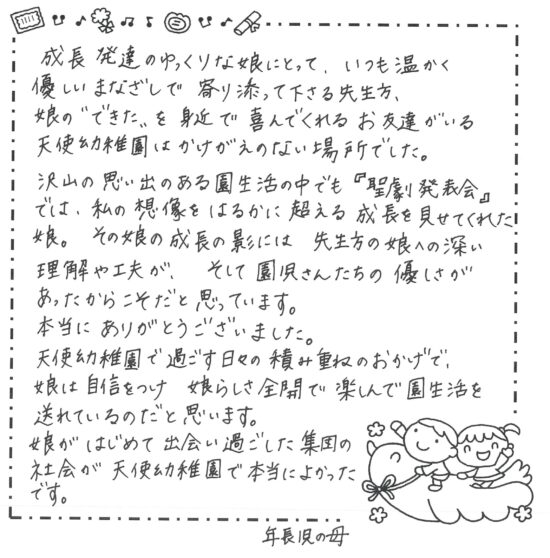 成長発達のゆっくりな娘にとって、いつも温かく
優しいまなざしで寄り添って下さる先生方、
娘の〝できた〟を身近で喜んでくれるお友達がいる
天使幼稚園はかけがえのない場所でした。
沢山の思い出のある園生活の中でも『聖劇発表会』
では、私の想像をはるかに超える成長を見せてくれた
娘。その娘の成長の影には先生方の娘への深い
理解や工夫が、そして園児さんたちの優しさが
あったからこそだと思っています。
本当にありがとうございました。
天使幼稚園で過ごす日々の積み重ねのおかげで、
娘は自信をつけ娘らしさ全開で楽しんで園生活を
送れているのだと思います。
娘がはじめて出会い過ごした集団の
社会が天使幼稚園で本当によかった
です。
年長児の母